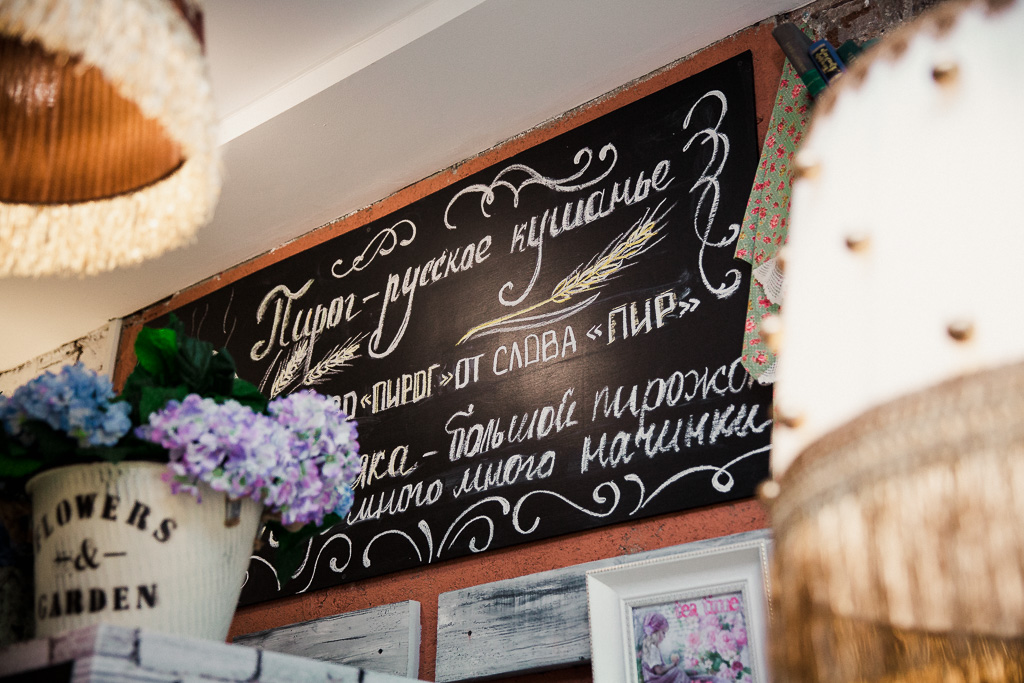 Пирог-русское кушанье
«ПИРОГ» ОТ СЛОВА «ПИР»
- большой пирожок
много много начинки
FLOWERS
&
GARDEN
tea time